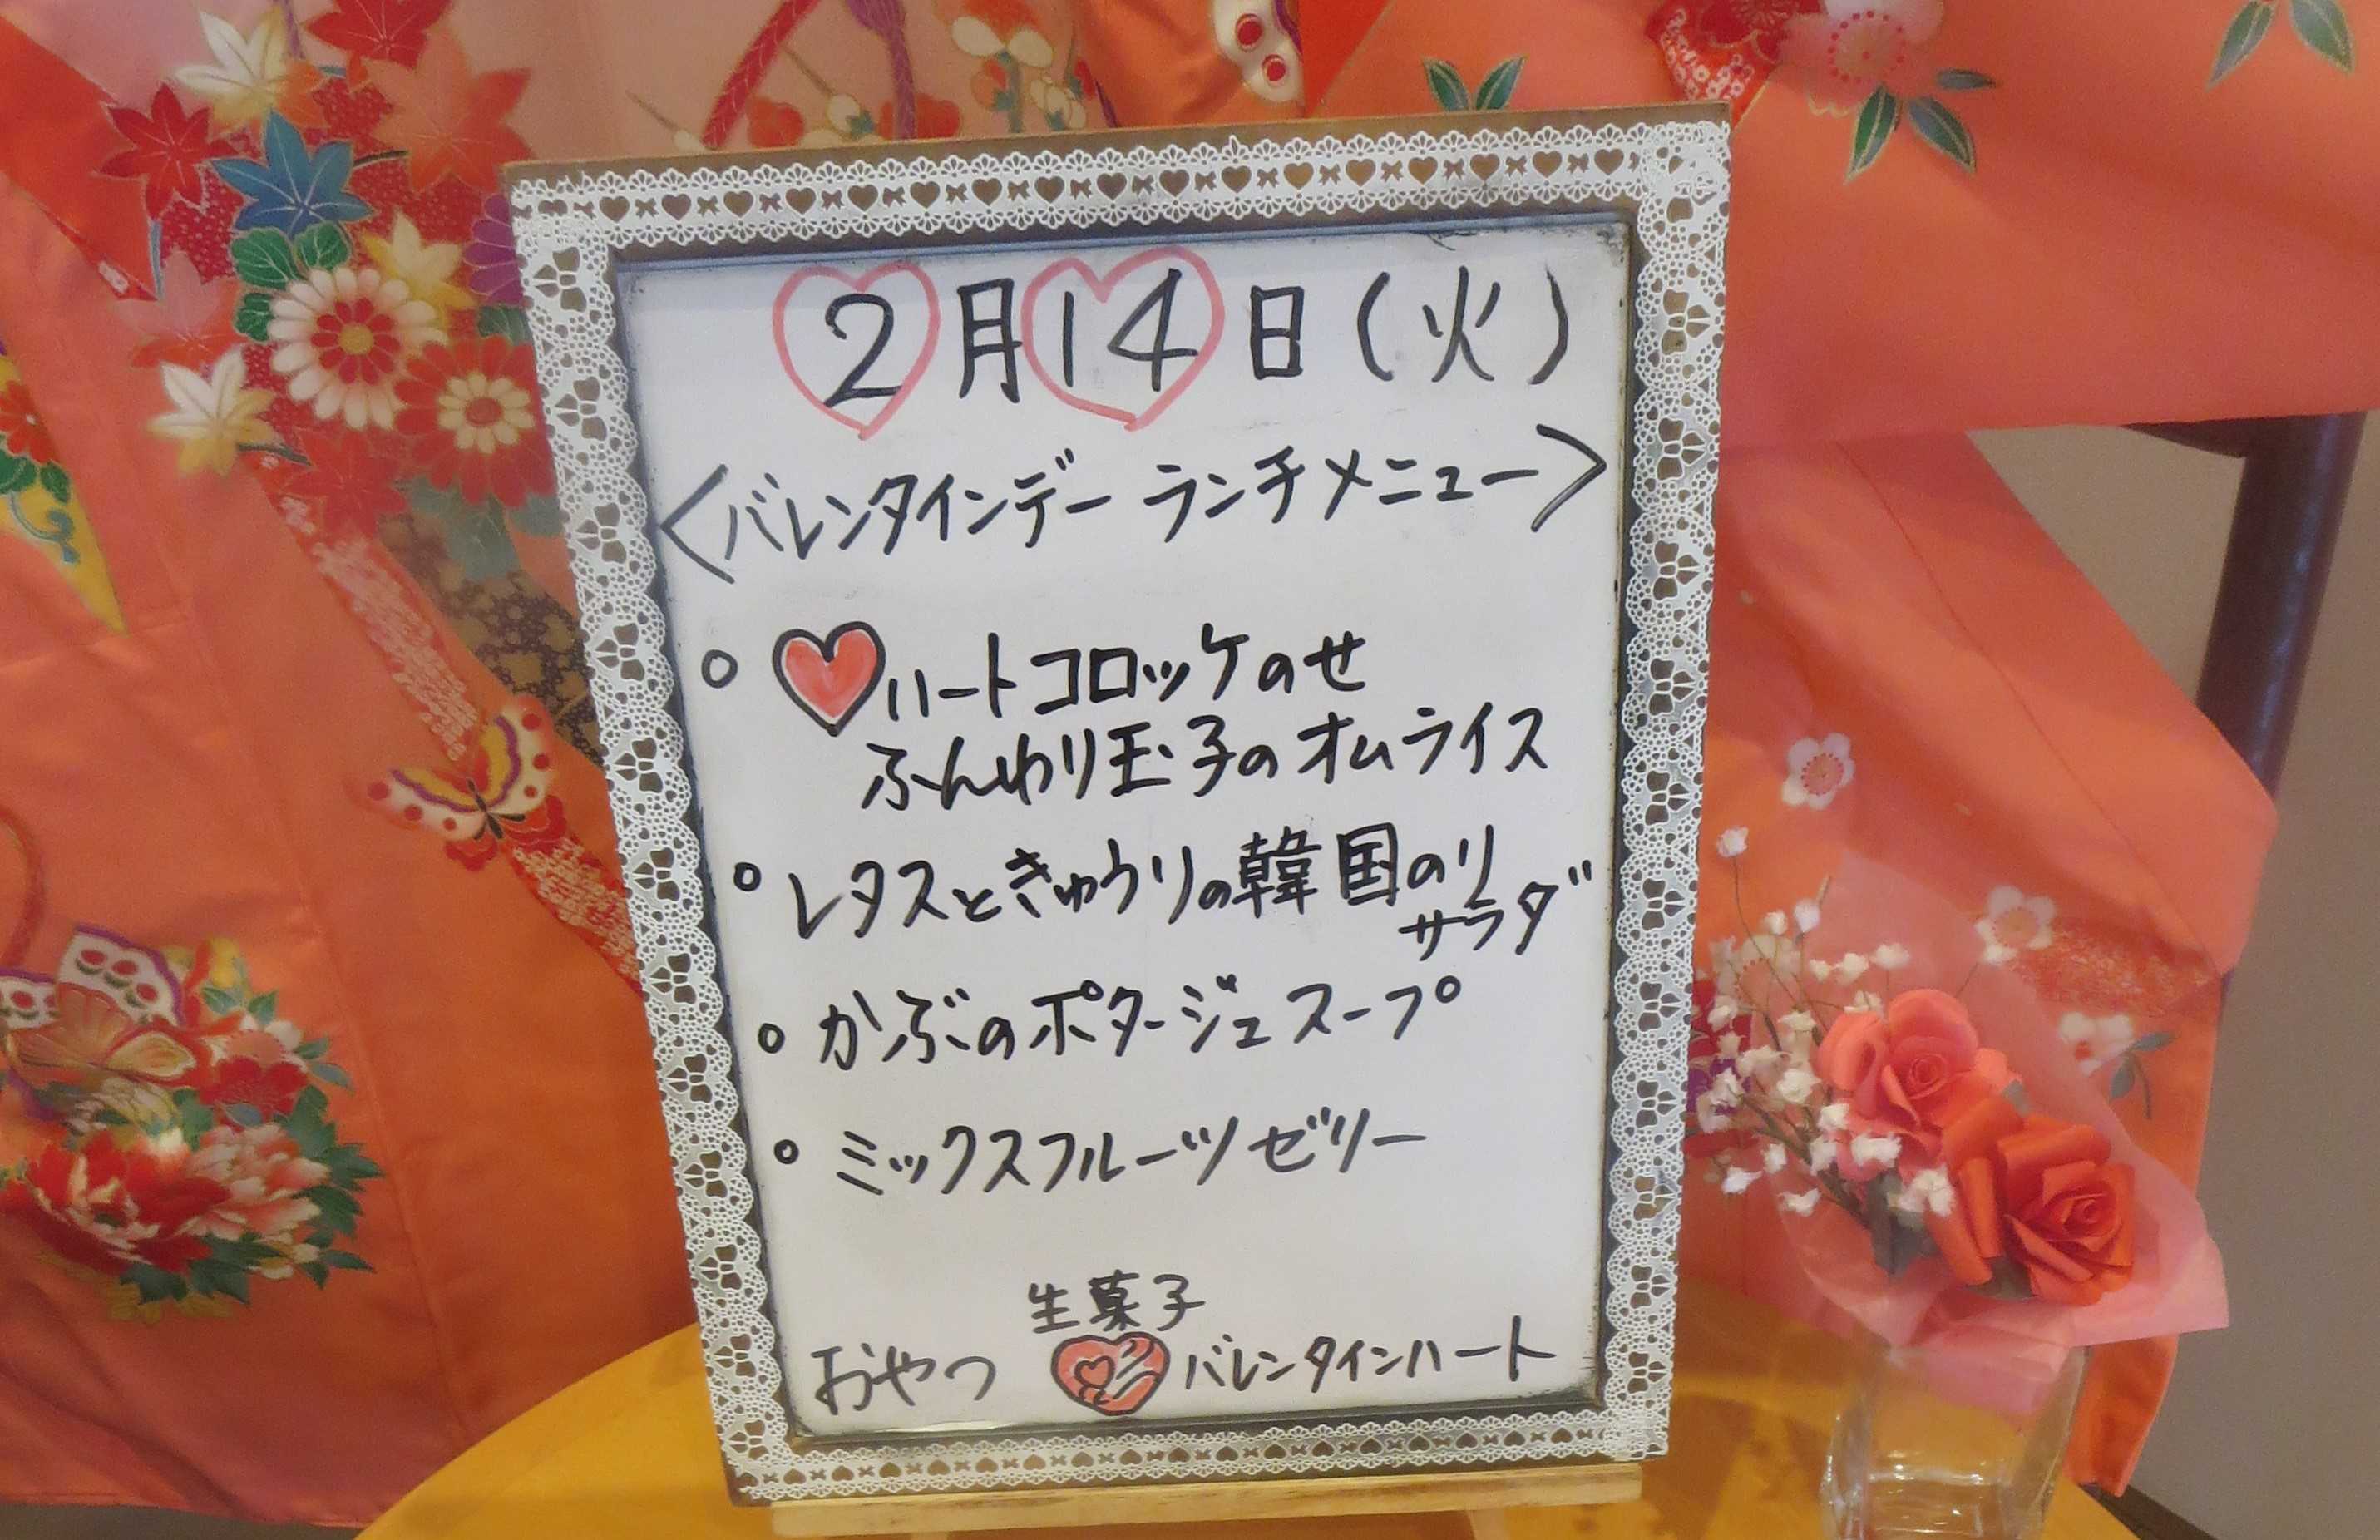 2月14日(火)
<バレンタインデー ランチメニュー>
○ ハートコロッケのせ
ふんわり玉子のオムライス
○ レタスときゅうりの韓国のり
サラダ
○ かぶのポタージュスープ
○ ミックスフルーツゼリー
生菓子
おやつ バレンタインハート